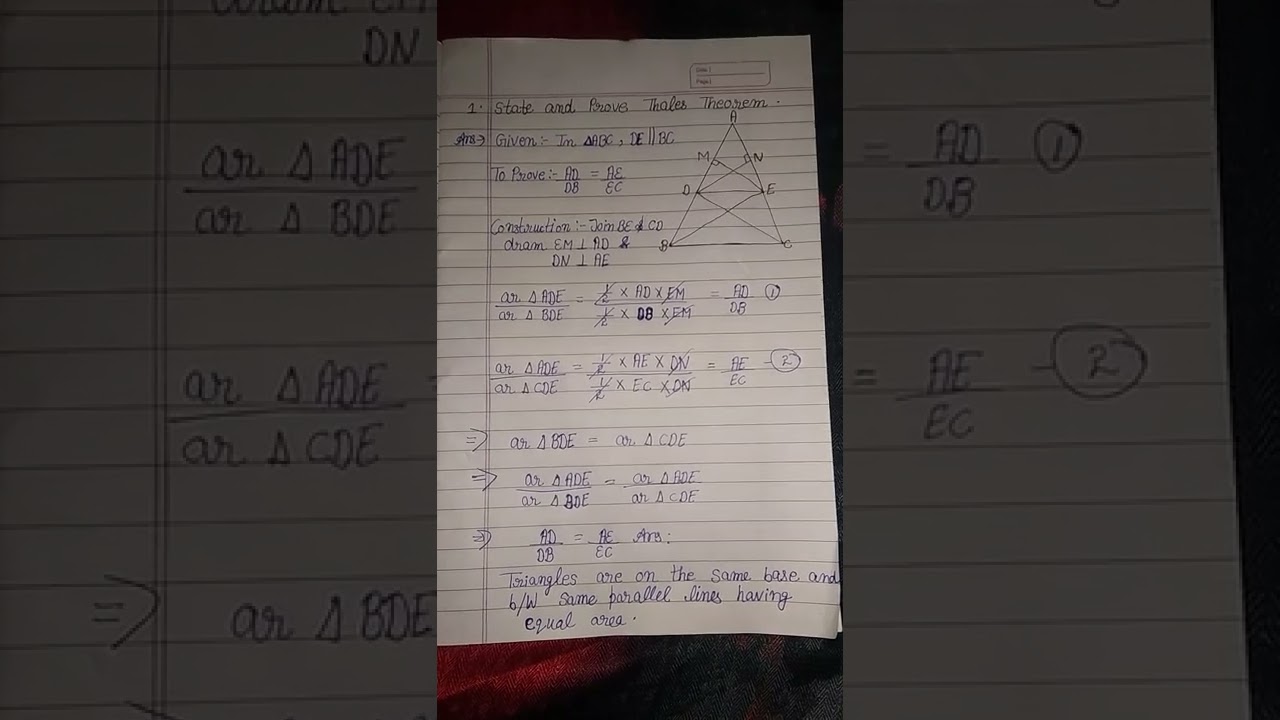 Date :
Page :
1. State and Prove Thales Theorem.
Ans→ Given:- In △ABC, DE || BC
To Prove:- AD/DB = AE/EC
Construction:- Join BE & CD
dram EM ⊥ AD &
DN ⊥ AE
A
M N
D E
B C
ar △ ADE / ar △ BDE = 1/2 × AD × EM / 1/2 × DB × EM = AD/DB ①
ar △ ADE / ar △ CDE = 1/2 × AE × DN / 1/2 × EC × DN = AE/EC -②
=> ar △ BDE = ar △ CDE
=> ar △ ADE / ar △ BDE = ar △ ADE / ar △ CDE
=> AD/DB = AE/EC Ans:
Triangles are on the same base and
b/w same parallel lines having
equal area.